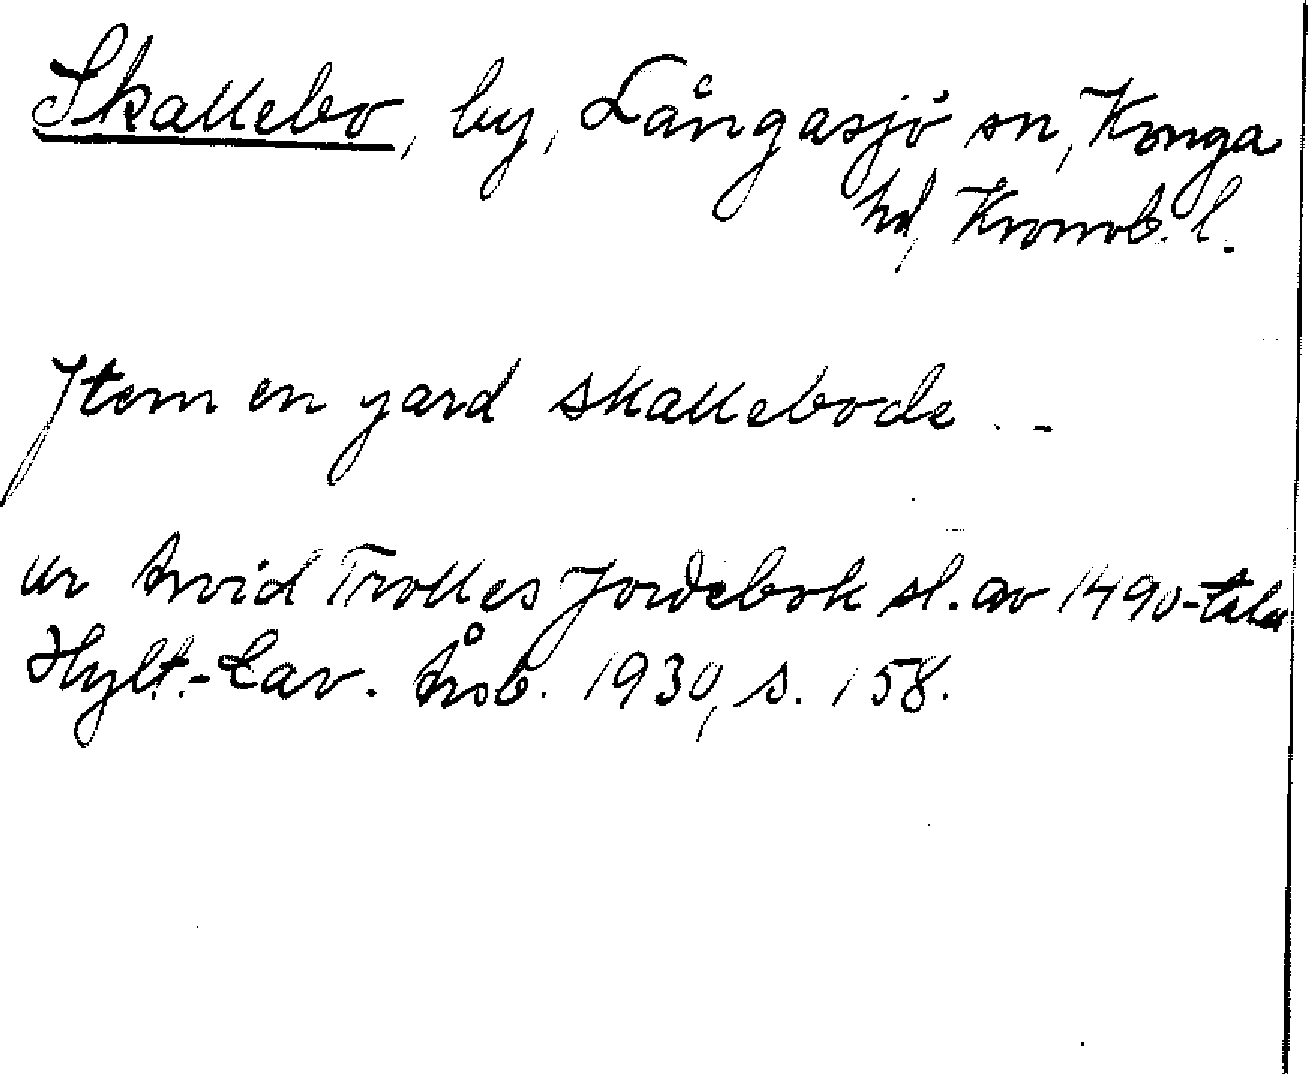 Skallebo, by, Långasjö sn, Konga
hd, Kronob. l.
Jtem en gard skallebode . . -
ur Arvid Trolles Jordebok sl. av 1490-talet
Hylt.-Cav. Årsb. 1930, s. 158.